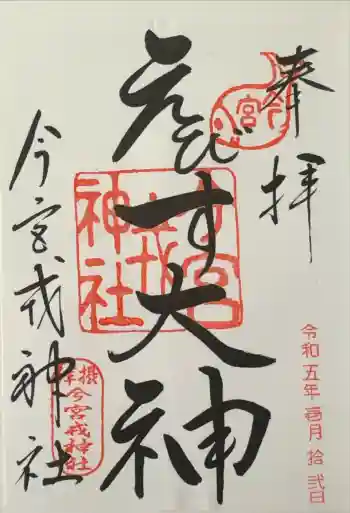 奉拝
今宮
ゑびす大神
今宮戎神社
今宮戎神社
摂津
今宮戎神社
令和五年壱月拾弐日